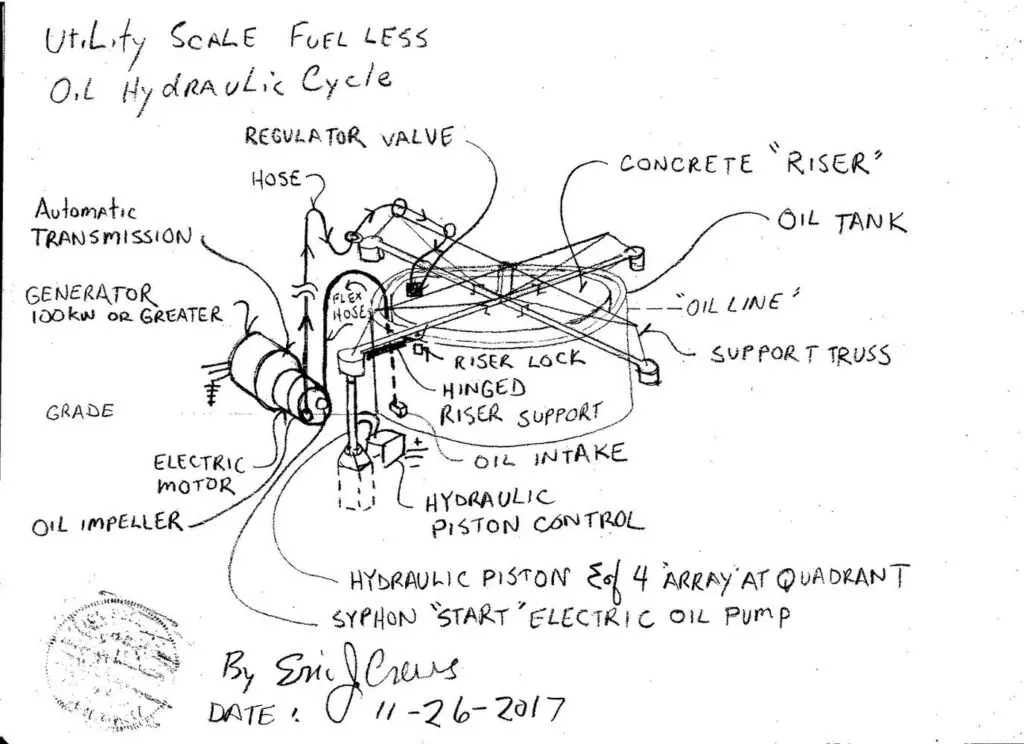 UtiLity SCALE FUEL LESS
OiL HydRAULic Cycle
REGULATOR VALVE
HOSE
CONCRETE "RISER"
Automatic
TRANSMISSION
OIL TANK
GENERATOR
100KW OR GREATER
FLEX
HOSE
"OIL LINE"
RISER LOCK
SUPPORT TRUSS
HINGED
RISER SUPPORT
GRADE
OIL INTAKE
ELECTRIC
MOTOR
HYDRAULIC
PISTON CONTROL
OIL IMPELLER
HYDRAULIC PISTON of 4 "ARRAY" AT QUADRANT
SYPHON "START" ELECTRIC OIL PUMP
By Eric J Crews
DATE: 11-26-2017